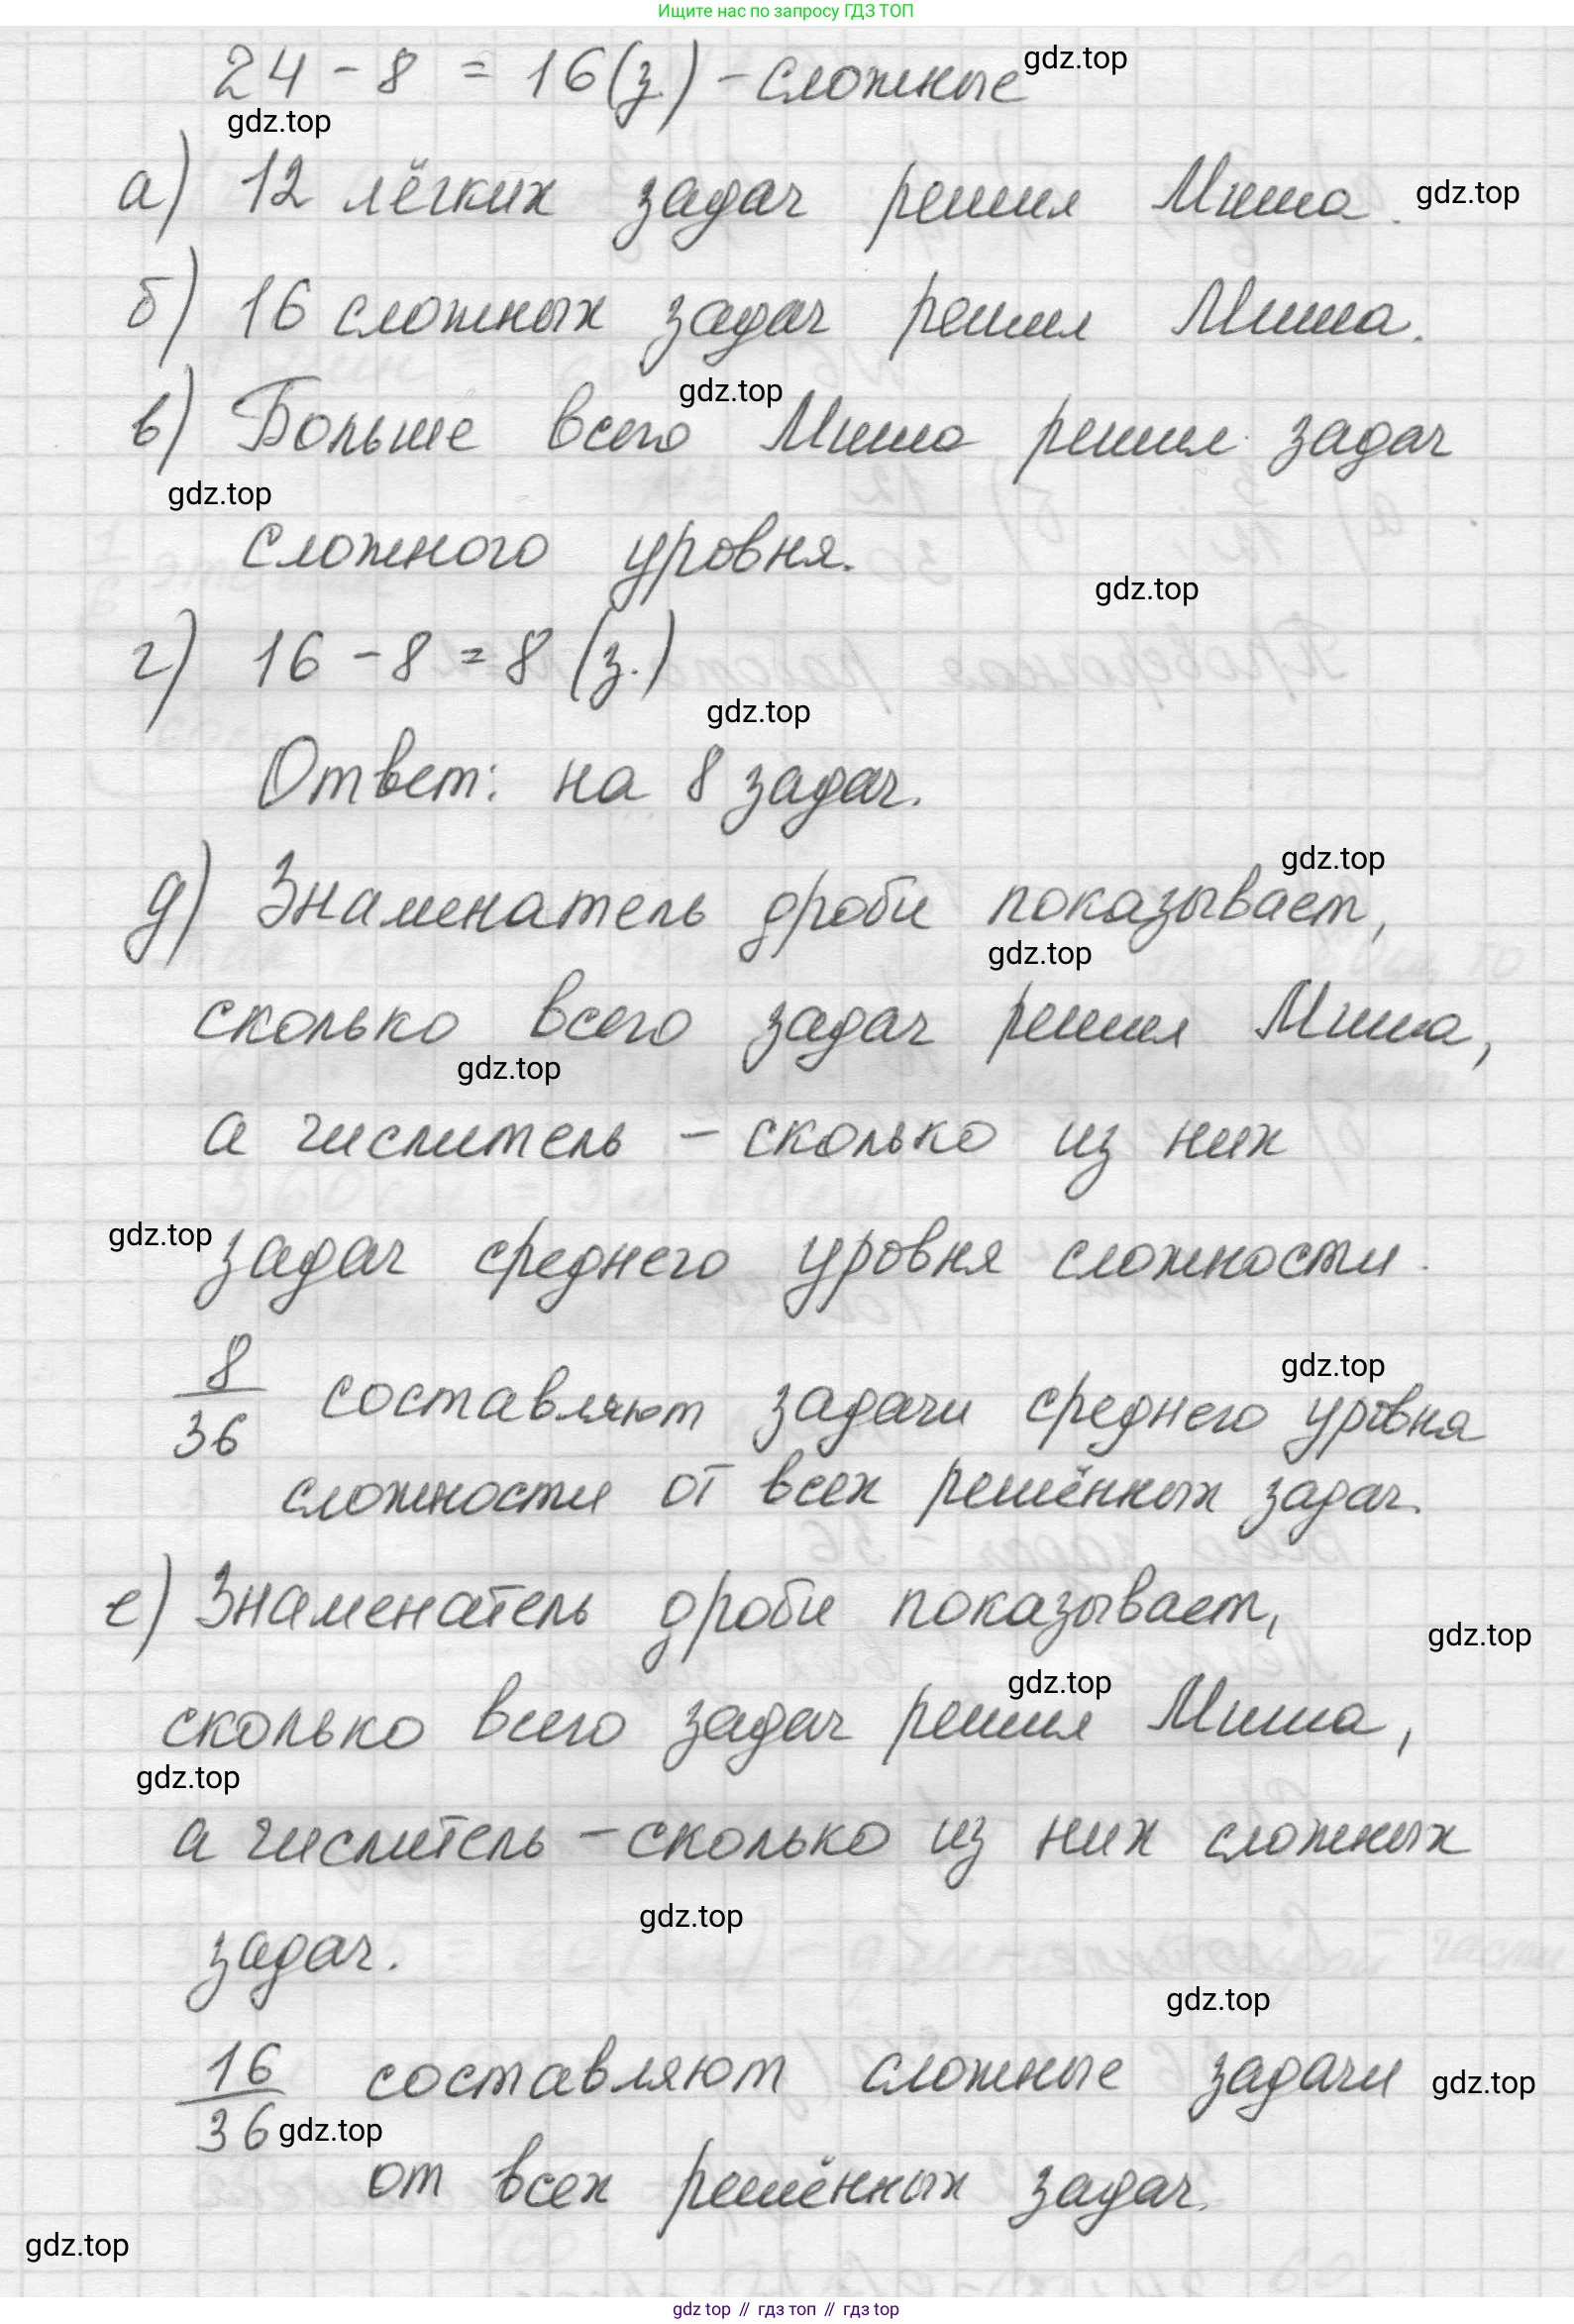 Ищите нас по запросу ГДЗ ТОП
24 - 8 = 16 (з.) - сложные
gdz.top
gdz.top
а) 12 лёгких задач решил Миша.
gdz.top
б) 16 сложных задач решил Миша.
gdz.top
в) Больше всего Миша решил задач
gdz.top
сложного уровня.
gdz.top
г) 16 - 8 = 8 (з.)
gdz.top
Ответ: на 8 задач.
gdz.top
д) Знаменатель дроби показывает,
gdz.top
сколько всего задач решил Миша,
gdz.top
а числитель - сколько из них
gdz.top
задач среднего уровня сложности.
gdz.top
8/36 составляют задачи среднего уровня
сложности от всех решённых задач.
е) Знаменатель дроби показывает,
gdz.top
gdz.top
сколько всего задач решил Миша,
gdz.top
а числитель - сколько из них сложных
gdz.top
задач.
gdz.top
16/36 составляют сложные задачи
gdz.top
gdz.top
от всех решённых задач.
gdz.top
gdz top // гдз топ // гдз top